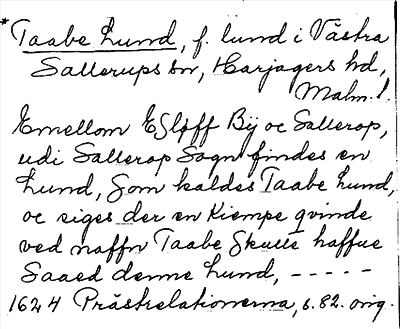 * Taabe Lund, f. lund i Västra
Sallerups sn, Harjagers hd,
Malm. l.
Emellom Esløff Bÿ oc Sallerop,
udi Sallerop Sogn findes en
Lund, Som kaldes Taabe Lund,
oc siges der en Kiempe qvinde
ved naffn Taabe Skulle haffue
Saaed denne Lund, - - - - -
1624 Prästrelationerna, s. 82. orig.